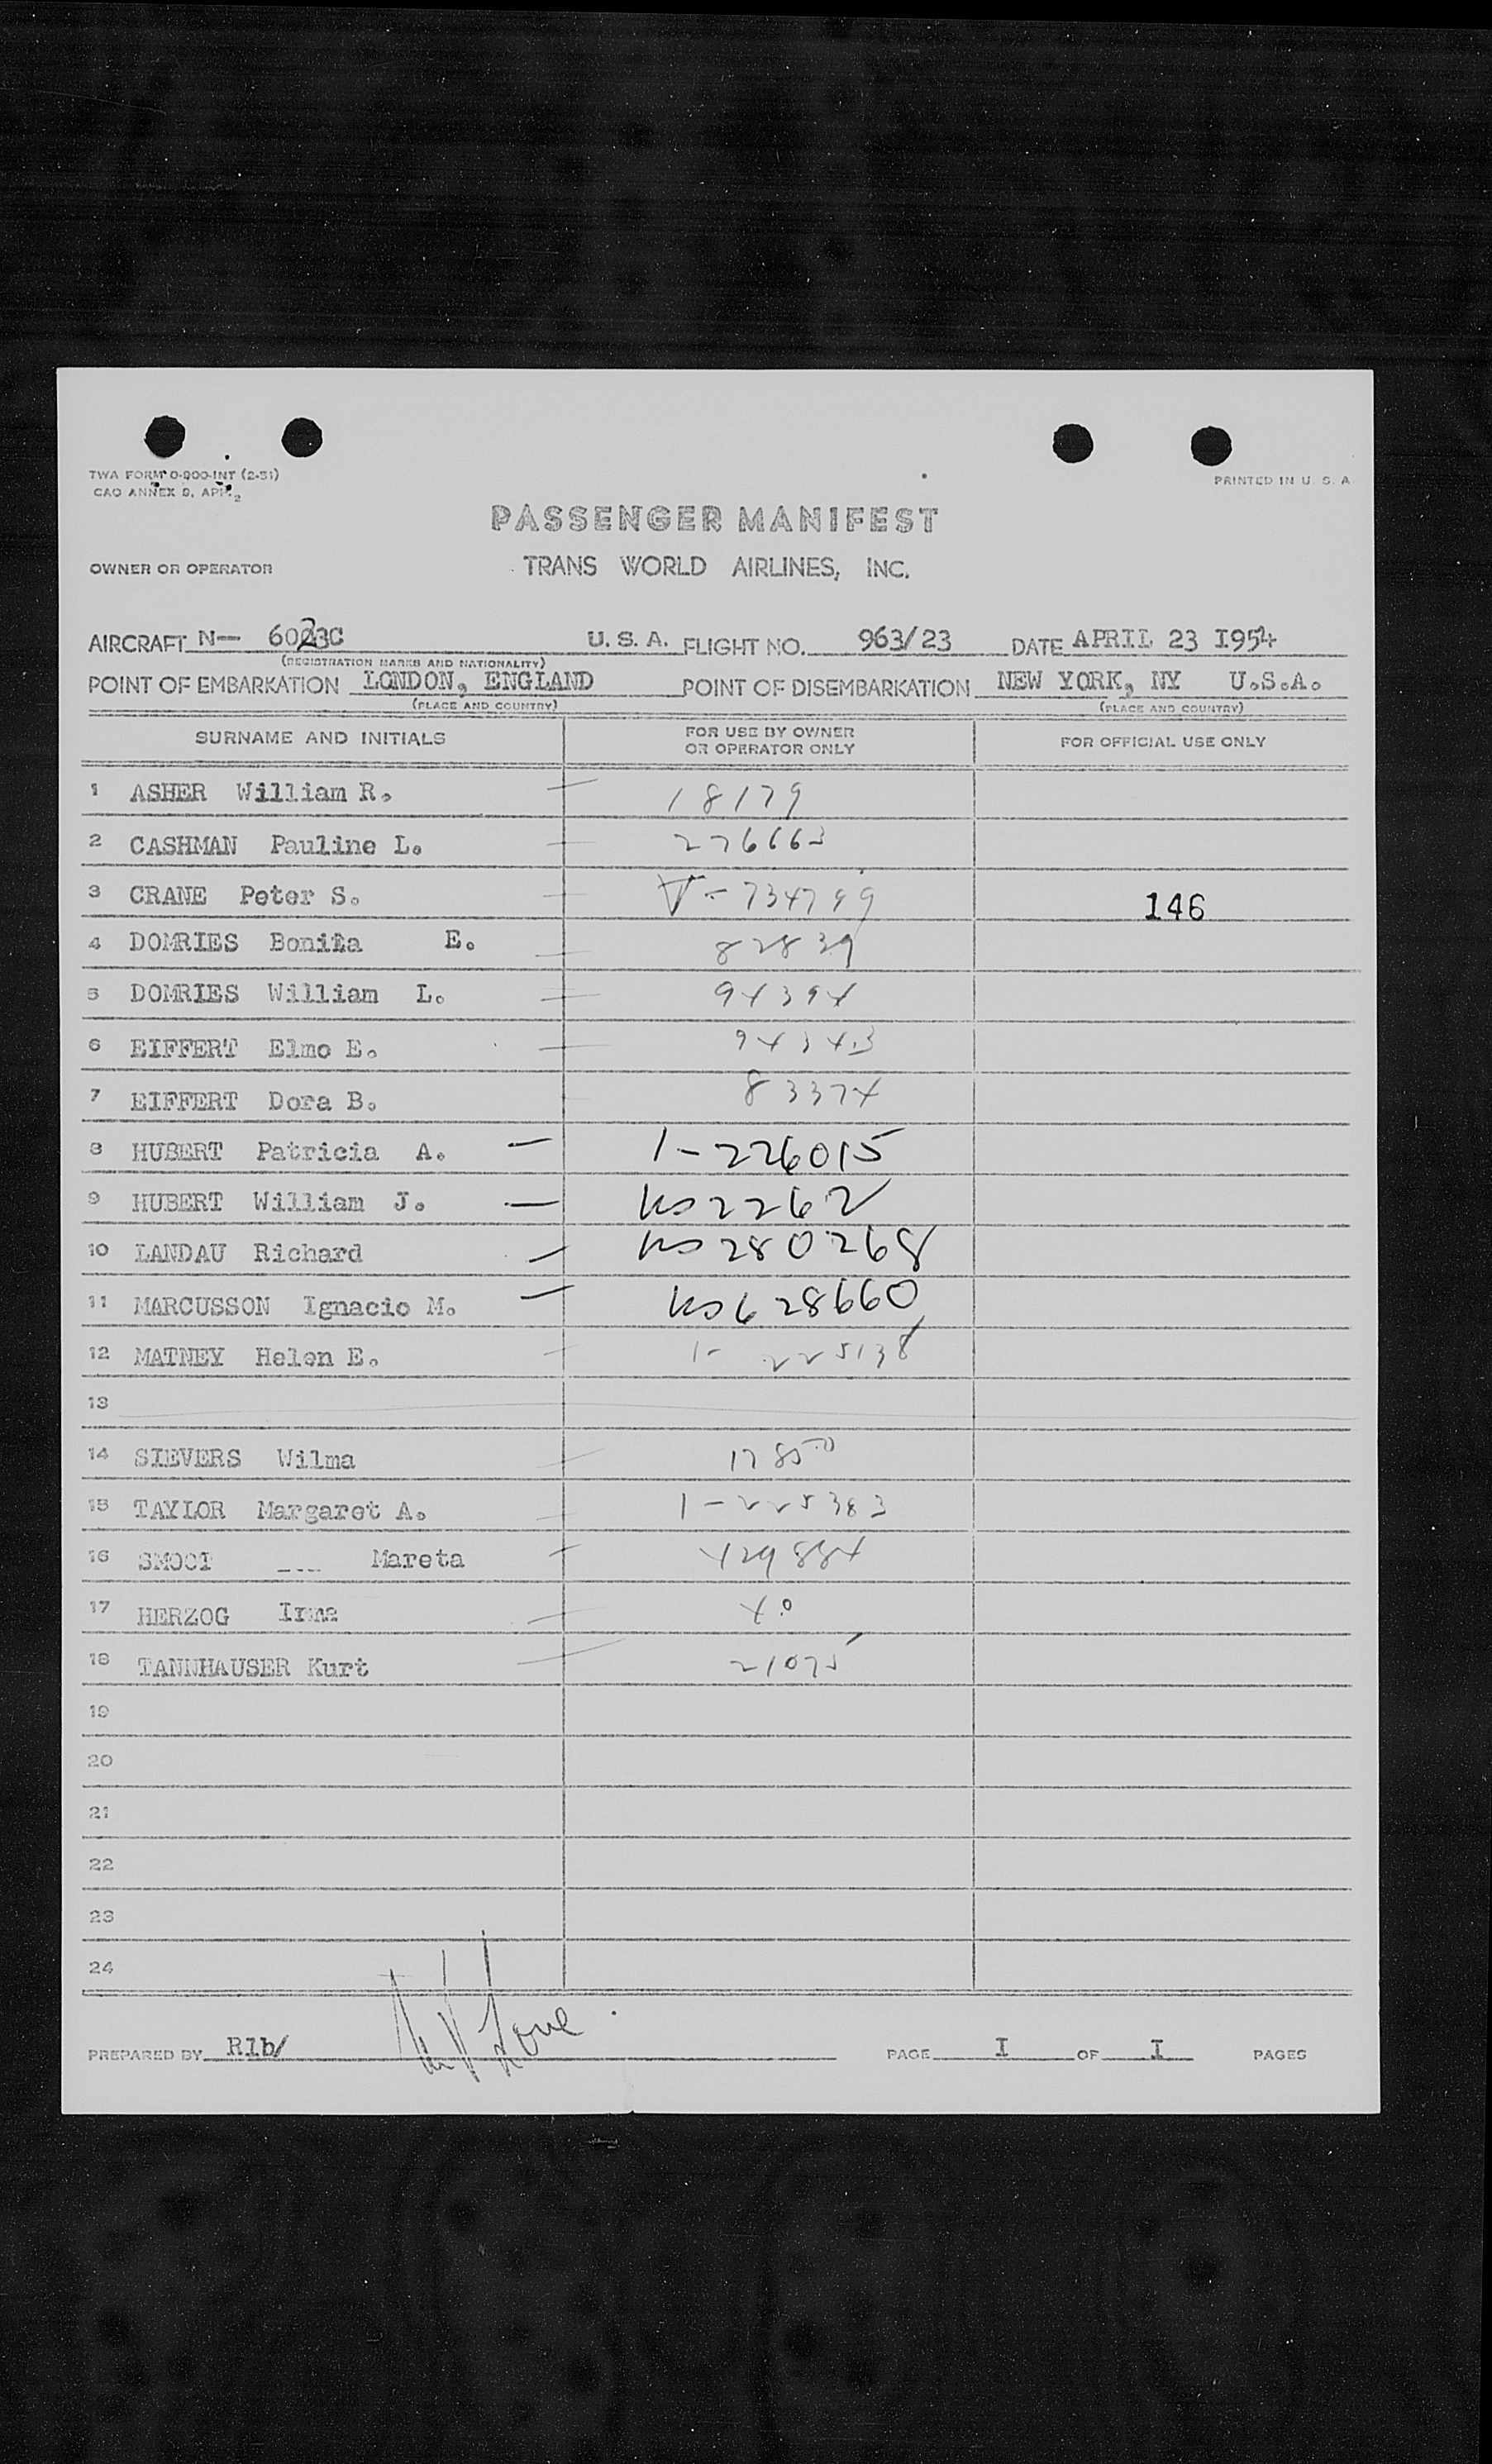 TWA FORM 0-900-INT (2-51)
PRINTED IN U. S. A.
PASSENGER MANIFEST
OWNER OR OPERATOR TRANS WORLD AIRLINES, INC.
AIRCRAFT N— 6023C U. S. A. FLIGHT NO. 963/23 DATE APRIL 23 I954
(REGISTRATION MARKS AND NATIONALITY)
POINT OF EMBARKATION LONDON, ENGLAND POINT OF DISEMBARKATION NEW YORK, NY U.S.A.
(PLACE AND COUNTRY) (PLACE AND COUNTRY)
SURNAME AND INITIALS FOR USE BY OWNER OR OPERATOR ONLY FOR OFFICIAL USE ONLY
1 ASHER William R. — 18179
2 CASHMAN Pauline L. — 226663
3 CRANE Peter S. — V-734799 146
4 DOMRIES Bonita E. — 82839
5 DOMRIES William L. — 94394
6 EIFFERT Elmo E. — 94343
7 EIFFERT Dora B. 83374
8 HUBERT Patricia A. — 1-226015
9 HUBERT William J. — 2262
10 LANDAU Richard — 280268
11 MARCUSSON Ignacio M. — 628660
12 MATNEY Helen E. — 1-225138
13
14 SIEVERS Wilma — 17850
15 TAYLOR Margaret A. — 1-225383
16 Mareta — 429884
17 HERZOG Irma —
18 TANNHAUSER Kurt — 21075
19
20
21
22
23
24
PREPARED BY Rlb/ PAGE I OF I PAGES